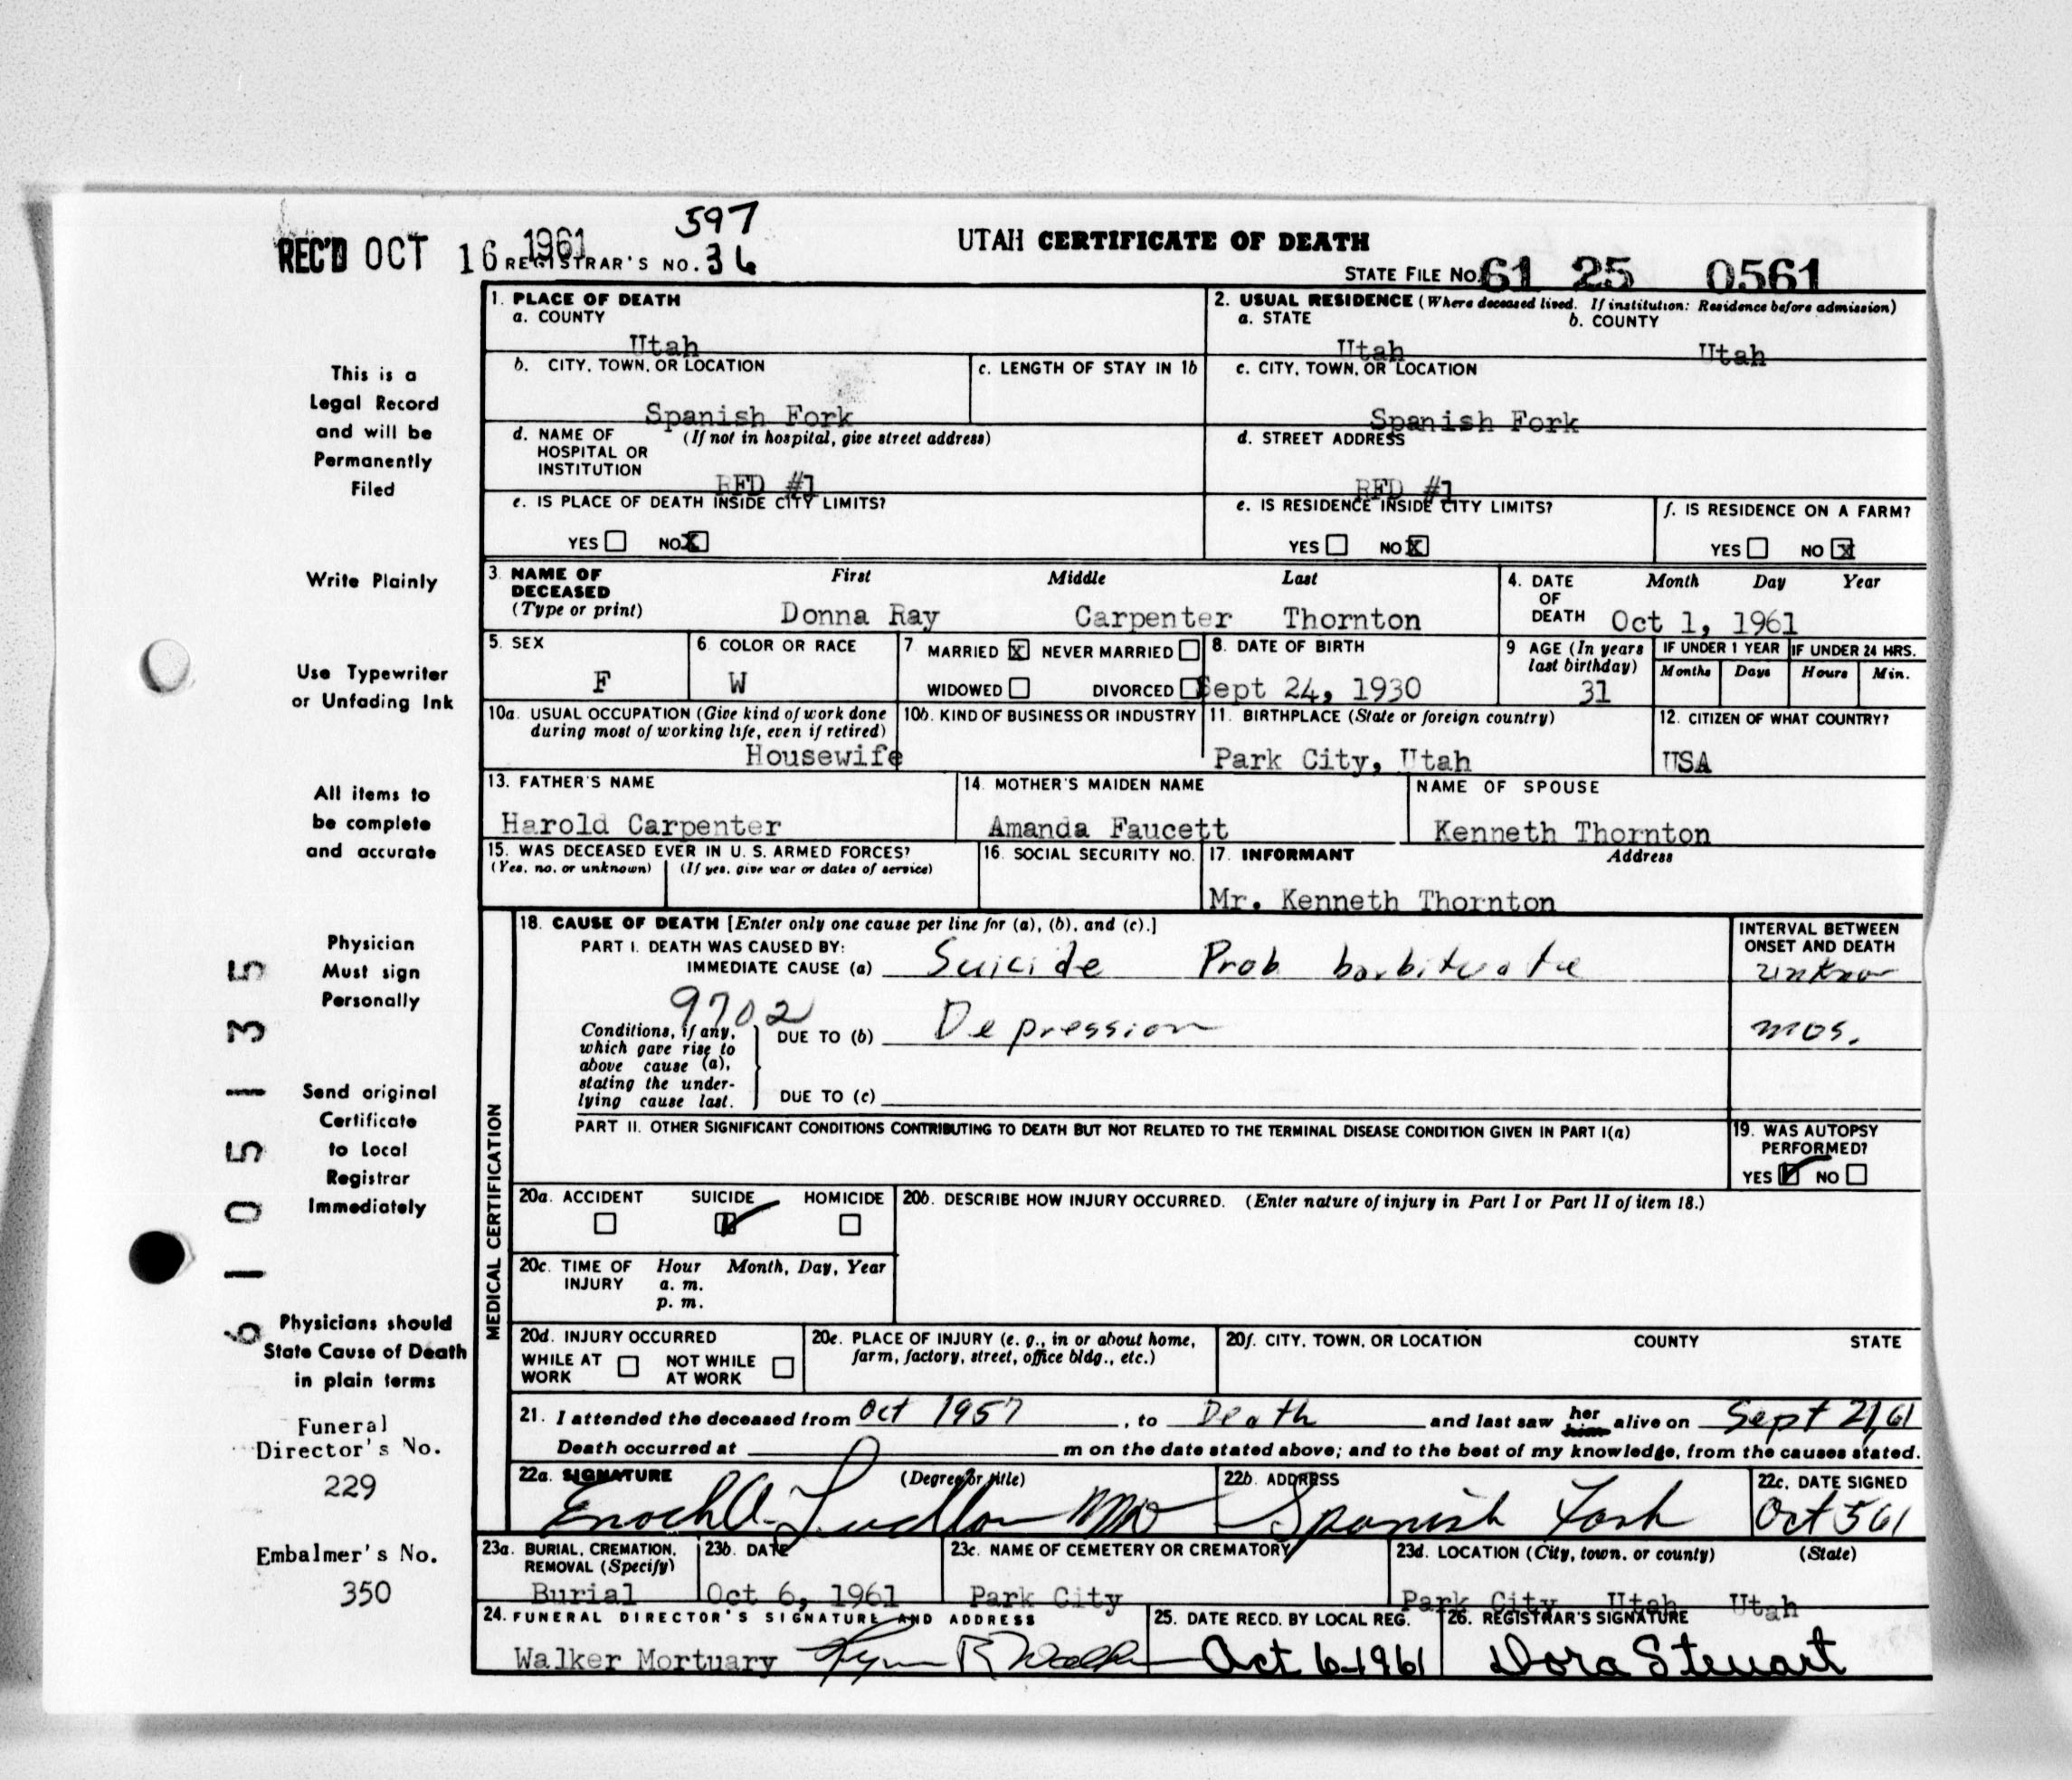 597
REC'D OCT 16 1961 REGISTRAR'S NO. 36
UTAH CERTIFICATE OF DEATH
STATE FILE NO. 61 25 0561
This is a
Legal Record
and will be
Permanently
Filed
Write Plainly
Use Typewriter
or Unfading Ink
All items to
be complete
and accurate
Physician
Must sign
Personally
Send original
Certificate
to Local
Registrar
Immediately
Physicians should
State Cause of Death
in plain terms
Funeral
Director's No.
229
Embalmer's No.
350
6105135
1. PLACE OF DEATH
a. COUNTY
Utah
2. USUAL RESIDENCE (Where deceased lived. If institution: Residence before admission)
a. STATE b. COUNTY
Utah Utah
b. CITY, TOWN, OR LOCATION
Spanish Fork
c. LENGTH OF STAY IN 1b
c. CITY, TOWN, OR LOCATION
Spanish Fork
d. NAME OF (If not in hospital, give street address)
HOSPITAL OR
INSTITUTION
RFD #1
d. STREET ADDRESS
RFD #1
e. IS PLACE OF DEATH INSIDE CITY LIMITS?
YES NO X
e. IS RESIDENCE INSIDE CITY LIMITS?
YES NO X
f. IS RESIDENCE ON A FARM?
YES NO X
3. NAME OF First Middle Last
DECEASED
(Type or print) Donna Ray Carpenter Thornton
4. DATE Month Day Year
OF
DEATH Oct 1, 1961
5. SEX
F
6. COLOR OR RACE
W
7 MARRIED X NEVER MARRIED
WIDOWED DIVORCED
8. DATE OF BIRTH
Sept 24, 1930
9 AGE (In years
last birthday)
31
IF UNDER 1 YEAR IF UNDER 24 HRS.
Months Days Hours Min.
10a. USUAL OCCUPATION (Give kind of work done
during most of working life, even if retired)
Housewife
10b. KIND OF BUSINESS OR INDUSTRY
11. BIRTHPLACE (State or foreign country)
Park City, Utah
12. CITIZEN OF WHAT COUNTRY?
USA
13. FATHER'S NAME
Harold Carpenter
14. MOTHER'S MAIDEN NAME
Amanda Faucett
NAME OF SPOUSE
Kenneth Thornton
15. WAS DECEASED EVER IN U. S. ARMED FORCES?
(Yes, no, or unknown) (If yes, give war or dates of service)
16. SOCIAL SECURITY NO.
17. INFORMANT Address
Mr. Kenneth Thornton
MEDICAL CERTIFICATION
18. CAUSE OF DEATH [Enter only one cause per line for (a), (b), and (c).]
PART I. DEATH WAS CAUSED BY:
IMMEDIATE CAUSE (a) Suicide Prob barbiturate
INTERVAL BETWEEN
ONSET AND DEATH
9702
Conditions, if any,
which gave rise to
above cause (a),
stating the under-
lying cause last.
DUE TO (b) Depression
mos.
DUE TO (c)
PART II. OTHER SIGNIFICANT CONDITIONS CONTRIBUTING TO DEATH BUT NOT RELATED TO THE TERMINAL DISEASE CONDITION GIVEN IN PART I(a)
19. WAS AUTOPSY
PERFORMED?
YES NO
20a. ACCIDENT SUICIDE HOMICIDE
20b. DESCRIBE HOW INJURY OCCURRED. (Enter nature of injury in Part I or Part II of item 18.)
20c. TIME OF Hour Month, Day, Year
INJURY a. m.
p. m.
20d. INJURY OCCURRED
WHILE AT NOT WHILE
WORK AT WORK
20e. PLACE OF INJURY (e. g., in or about home,
farm, factory, street, office bldg., etc.)
20f. CITY, TOWN, OR LOCATION COUNTY STATE
21. I attended the deceased from Oct 1957, to Death and last saw her him alive on Sept 21, 61
Death occurred at m on the date stated above; and to the best of my knowledge, from the causes stated.
22a. SIGNATURE (Degree or title)
Enoch A. Ludlow MD
22b. ADDRESS
Spanish Fork
22c. DATE SIGNED
Oct 5 61
23a. BURIAL, CREMATION,
REMOVAL (Specify)
Burial
23b. DATE
Oct 6, 1961
23c. NAME OF CEMETERY OR CREMATORY
Park City
23d. LOCATION (City, town, or county) (State)
Park City Utah Utah
24. FUNERAL DIRECTOR'S SIGNATURE AND ADDRESS
Walker Mortuary
25. DATE RECD. BY LOCAL REG.
Oct 6-1961
26. REGISTRAR'S SIGNATURE
Dora Stewart